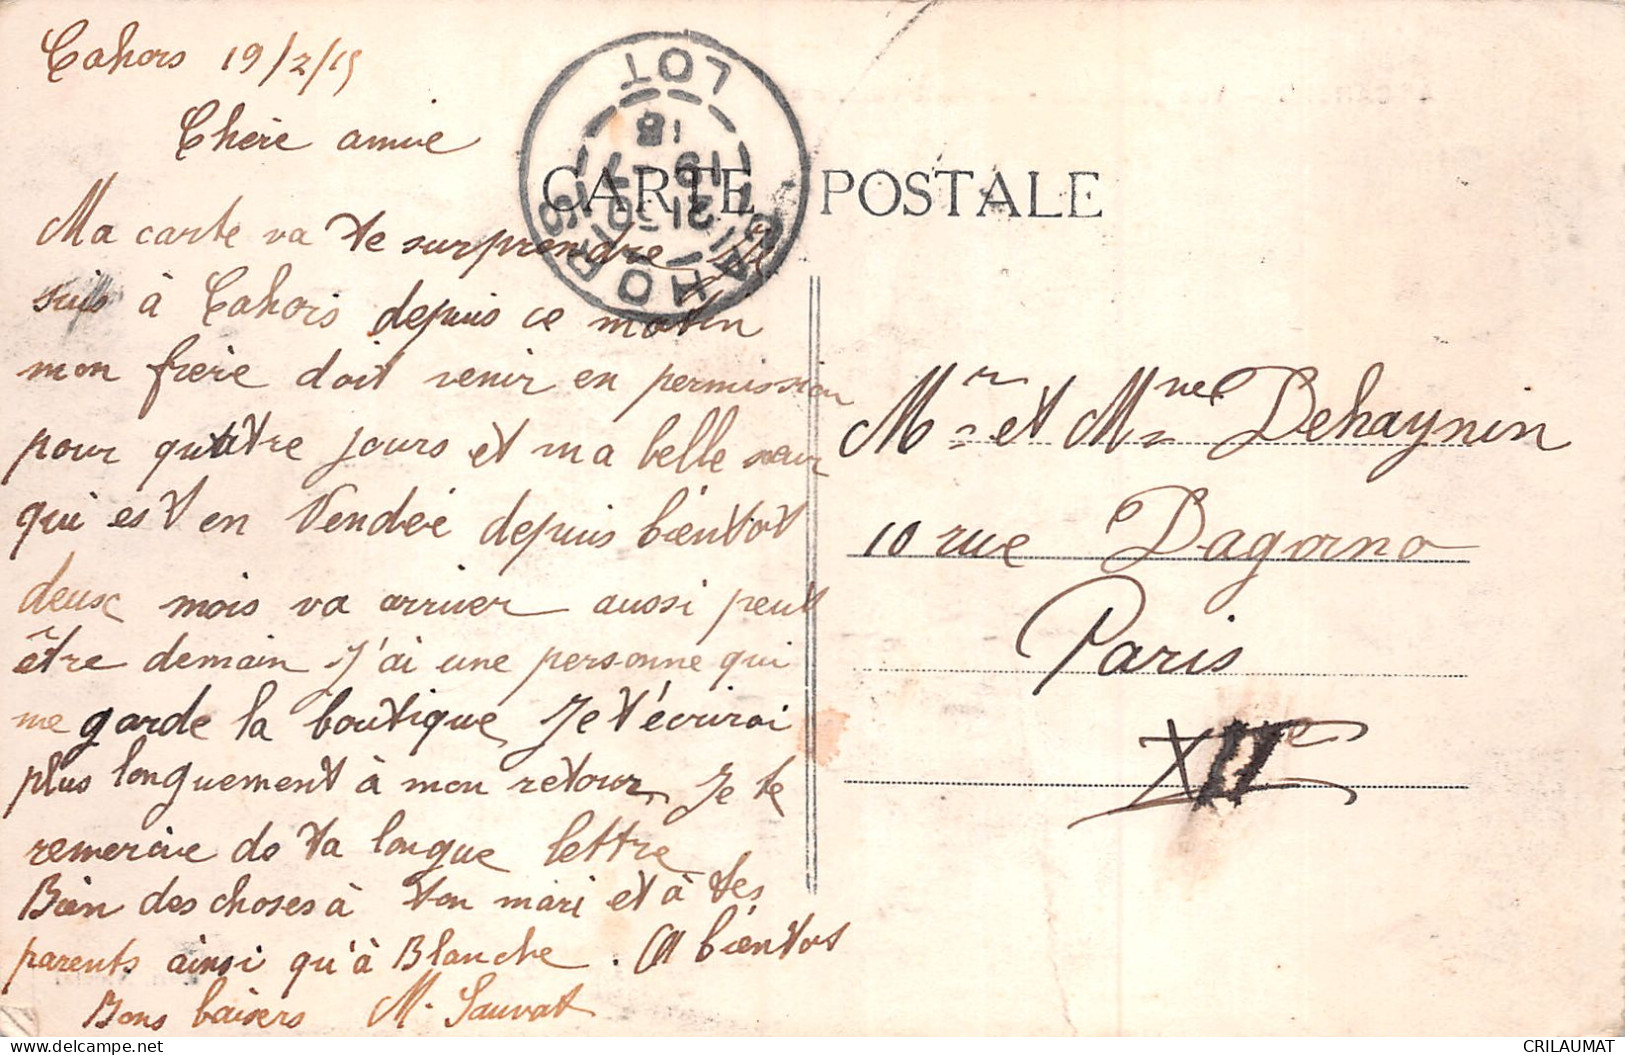 Cahors 19/2/15
Chère amie
Ma carte va te surprendre Je
suis à Cahors depuis ce matin
mon frère doit venir en permission
pour quatre jours et ma belle sœur
qui est en Vendée depuis bientot
deux mois va arriver aussi peut
être demain J'ai une personne qui
me garde la boutique, Je t'écrirai
plus longuement à mon retour, Je te
remercie de ta longue lettre
Bien des choses à ton mari et à tes
parents ainsi qu'à Blanche. A bientot
Bons baisers M. Sauvat
CARTE POSTALE
CAHORS
LOT
18
19
21
Mr et Mme Dehaynin
10 rue Dagorno
Paris
XIIe
CRILAUMAT